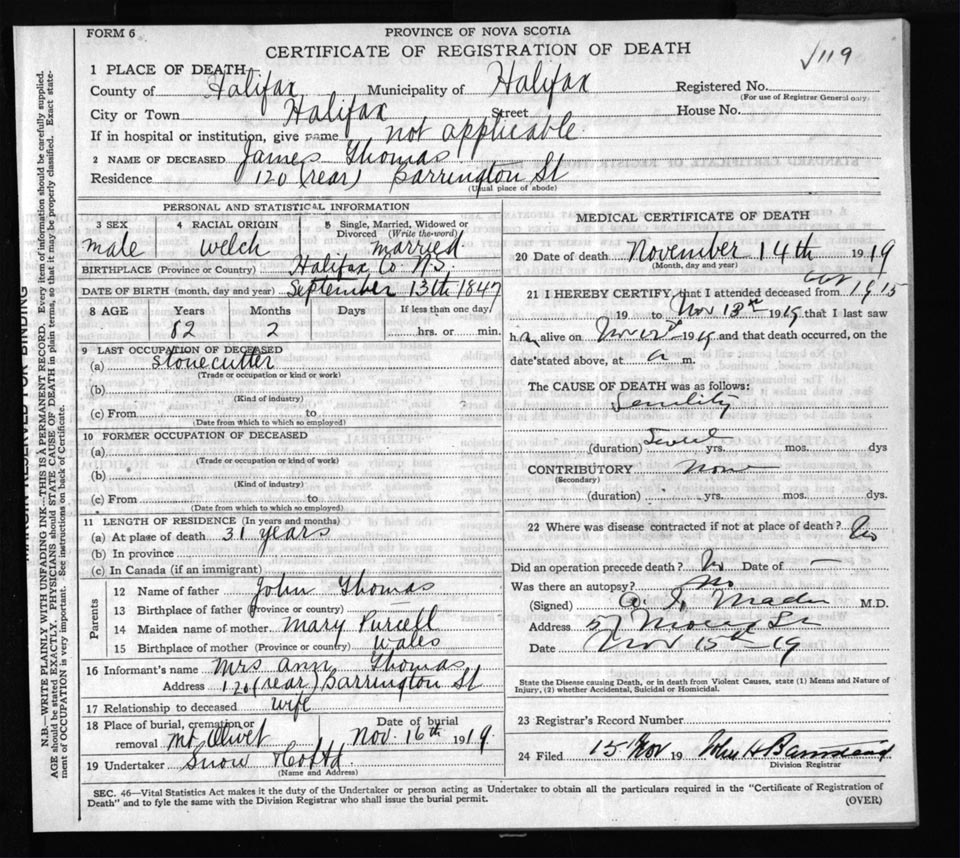 FORM 6
PROVINCE OF NOVA SCOTIA
CERTIFICATE OF REGISTRATION OF DEATH
√119
1 PLACE OF DEATH
County of Halifax Municipality of Halifax Registered No.
(For use of Registrar General only)
City or Town Halifax Street House No.
If in hospital or institution, give name not applicable
2 NAME OF DECEASED James Thomas
Residence 120 (rear) Barrington St
(Usual place of abode)
PERSONAL AND STATISTICAL INFORMATION
3 SEX 4 RACIAL ORIGIN 5 Single, Married, Widowed or Divorced (Write the word)
male welch married
BIRTHPLACE (Province or Country) Halifax Co N.S.
DATE OF BIRTH (month, day and year) September 13th 1847
8 AGE Years Months Days If less than one day
82 2 hrs. or min.
9 LAST OCCUPATION OF DECEASED
(a) Stonecutter
(Trade or occupation or kind or work)
(b)
(Kind of industry)
(c) From to
(Date from which to which so employed)
10 FORMER OCCUPATION OF DECEASED
(a)
(Trade or occupation or kind of work)
(b)
(Kind of industry)
(c) From to
(Date from which to which so employed)
11 LENGTH OF RESIDENCE (In years and months)
(a) At place of death 31 years
(b) In province
(c) In Canada (if an immigrant)
Parents
12 Name of father John Thomas
13 Birthplace of father (Province or country) —
14 Maiden name of mother Mary Purcell
15 Birthplace of mother (Province or country) Wales
16 Informant's name Mrs Ann Thomas
Address 120 (rear) Barrington St
17 Relationship to deceased wife
18 Place of burial, cremation or removal Mt Olivet Date of burial Nov. 16th 1919
19 Undertaker Snow & Co Ltd
(Name and Address)
MEDICAL CERTIFICATE OF DEATH
20 Date of death November 14th 1919
(Month, day and year)
21 I HEREBY CERTIFY, that I attended deceased from 1915
19 to Nov 13th 1919 that I last saw
him alive on Nov 12th 1919 and that death occurred, on the
date stated above, at a m.
The CAUSE OF DEATH was as follows:
Senility
(duration) yrs. mos. dys
CONTRIBUTORY None
(Secondary)
(duration) yrs. mos. dys.
22 Where was disease contracted if not at place of death?
Did an operation precede death? No Date of —
Was there an autopsy? No
(Signed) M.D.
Address
Date Nov 15th 19
State the Disease causing Death, or in death from Violent Causes, state (1) Means and Nature of Injury, (2) whether Accidental, Suicidal or Homicidal.
23 Registrar's Record Number
24 Filed 15 Nov 19 John H Barnstead
Division Registrar
SEC. 46—Vital Statistics Act makes it the duty of the Undertaker or person acting as Undertaker to obtain all the particulars required in the "Certificate of Registration of
Death" and to fyle the same with the Division Registrar who shall issue the burial permit. (OVER)
MARGIN RESERVED FOR BINDING
N.B.—WRITE PLAINLY WITH UNFADING INK—THIS IS A PERMANENT RECORD. Every item of information should be carefully supplied.
AGE should be stated EXACTLY. PHYSICIANS should STATE CAUSE OF DEATH in plain terms, so that it may be properly classified. Exact state-
ment of OCCUPATION is very important. See instructions on back of Certificate.